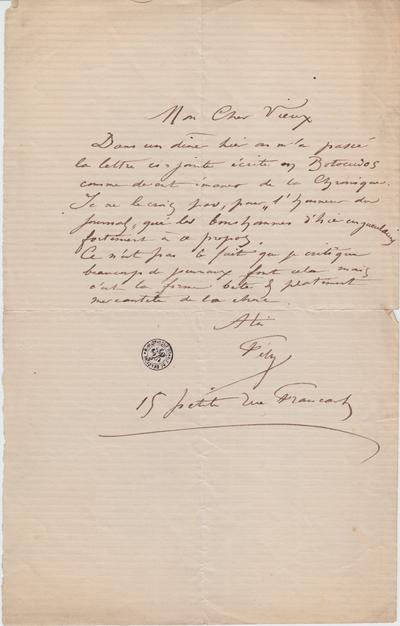 Mon Cher Vieux
Dans un diner hier on m'a passé
la lettre ci-jointe écrite en Botocudos
comme devant émaner de la Chronique.
Je ne le crois pas, pour l'honneur du
journal, que les bonshommes d'hier engueulaient
fortement à ce propos.
Ce n'est pas le fait que je critique
beaucoup de journaux font cela mais
c'est la forme bête & platement
mercantile de la chose.
à toi
Fély
15 petite rue Francart